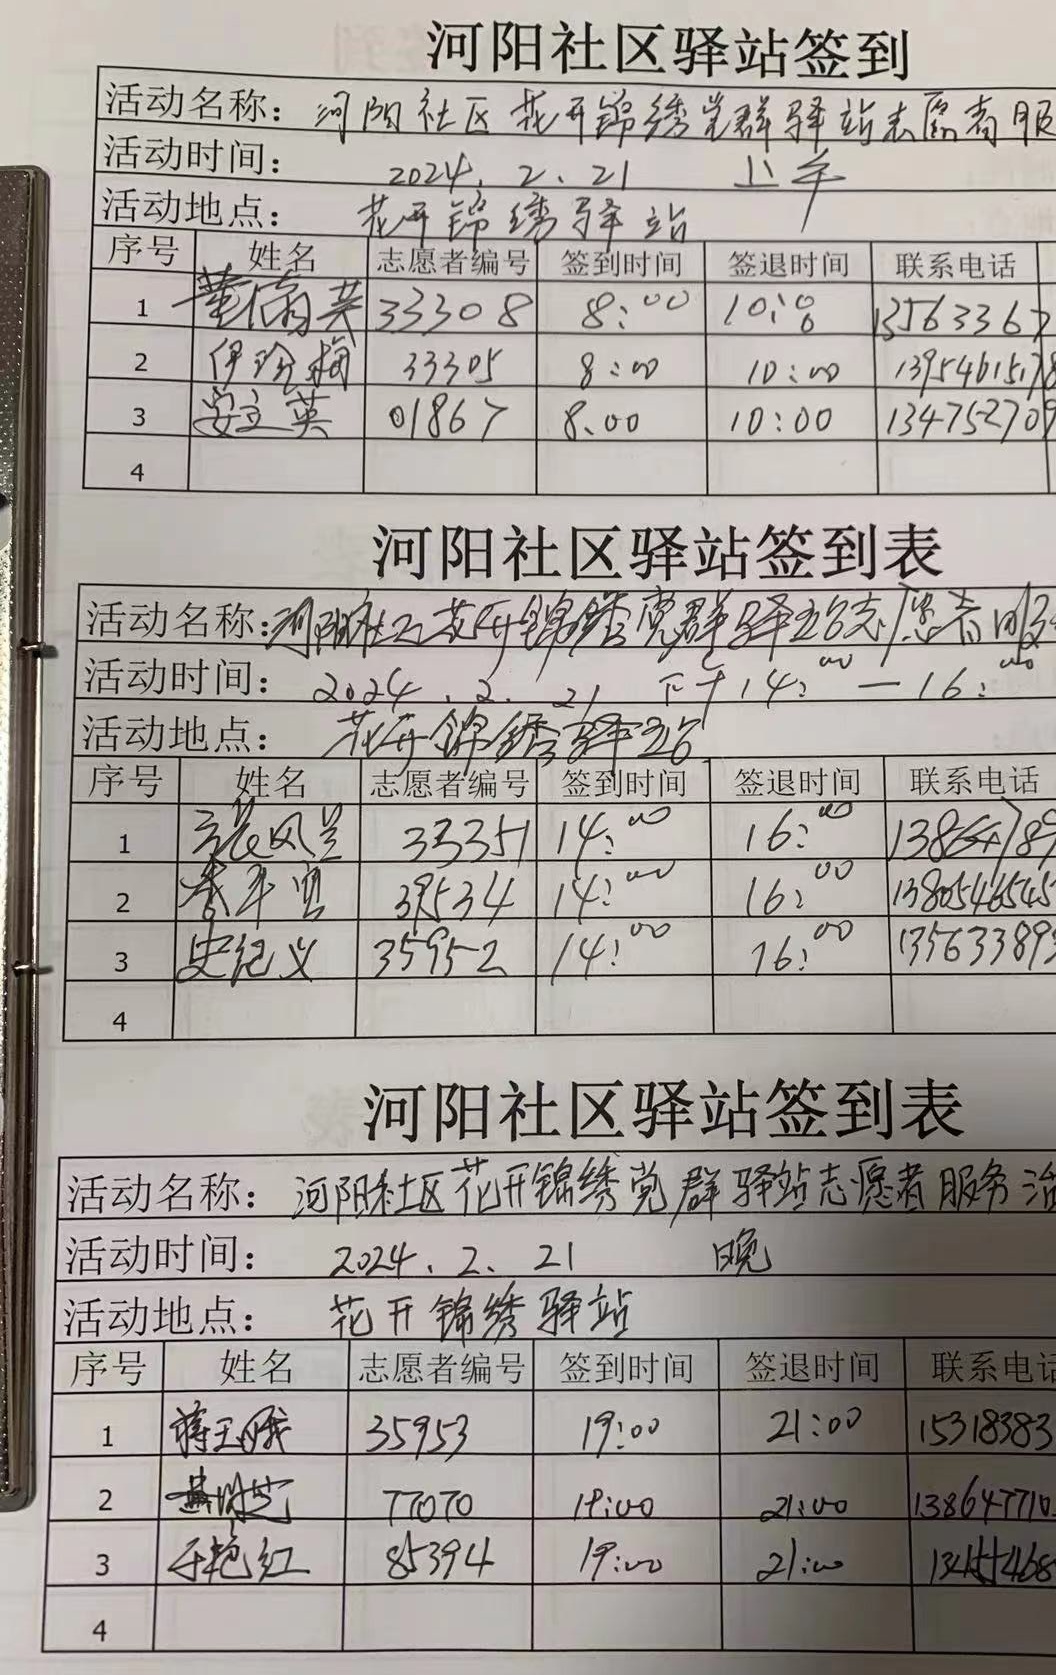 河阳社区驿站签到
活动名称：河阳社区花开锦绣党群驿站志愿者服
活动时间： 2024.2.21 上午
活动地点： 花开锦绣驿站
序号 姓名 志愿者编号 签到时间 签退时间 联系电话
1 33308 8:00 10:00 13563367
2 伊玲梅 33305 8:00 10:00 1395461578
3 安立英 01867 8.00 10:00 134752709
4
河阳社区驿站签到表
活动名称：河阳社区花开锦绣党群驿站志愿者服
活动时间： 2024.2.21 下午14:00—16:00
活动地点： 花开锦绣驿站
序号 姓名 志愿者编号 签到时间 签退时间 联系电话
1 33351 14:00 16:00
2 39534 14:00 16:00 1380546545
3 史纪义 35952 14:00 16:00 135633893
4
河阳社区驿站签到表
活动名称：河阳社区花开锦绣党群驿站志愿者服务活
活动时间： 2024.2.21 晚
活动地点： 花开锦绣驿站
序号 姓名 志愿者编号 签到时间 签退时间 联系电话
1 蒋玉娥 35953 19:00 21:00 15318383
2 77070 19:00 21:00 138647710
3 于艳红 85394 19:00 21:00
4